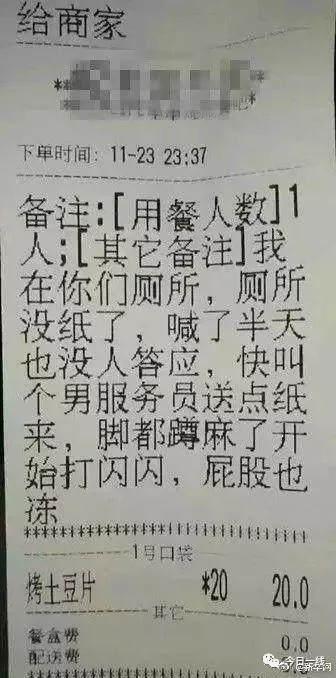 给商家
下单时间: 11-23 23:37
备注:[用餐人数]1
人;[其它备注]我
在你们厕所，厕所
没纸了，喊了半天
也没人答应，快叫
个男服务员送点纸
来，脚都蹲麻了开
始打闪闪，屁股也
冻
1号口袋
烤土豆片 *20 20.0
其它
餐盒费 0.0
配送费
今日一线